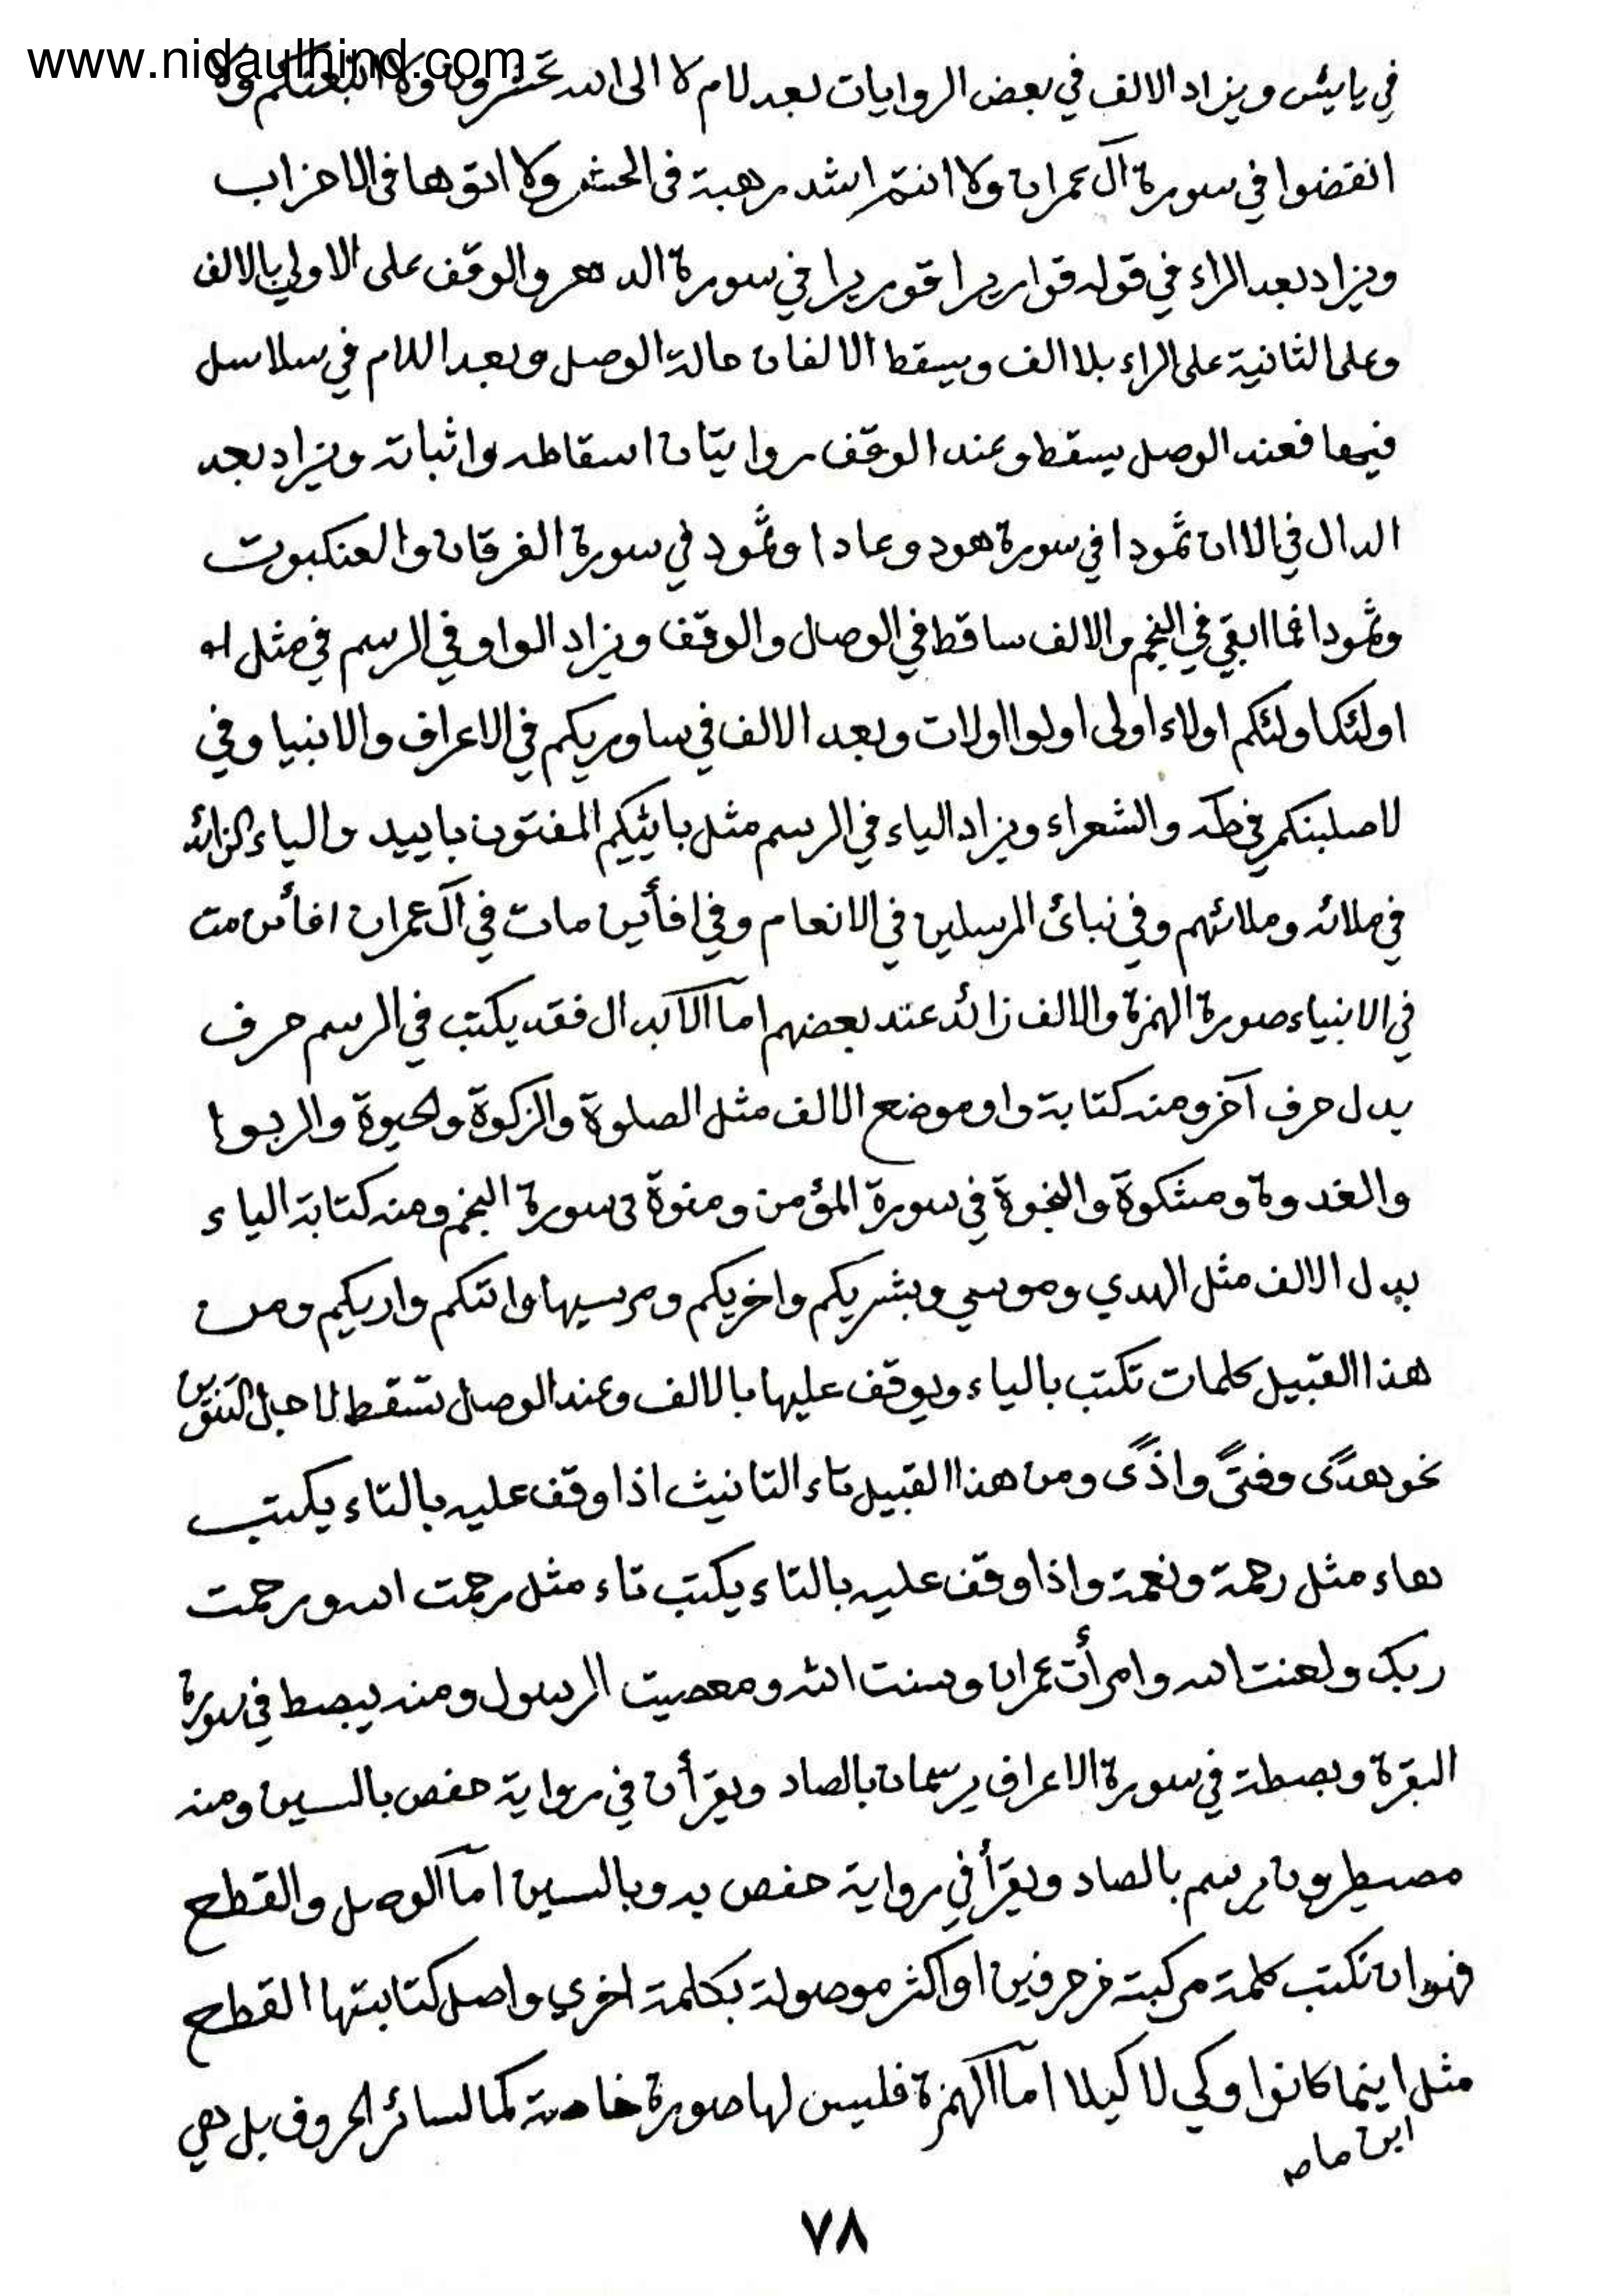 www.nidaulhind.com
في يايئس ويزاد الالف في بعض الروايات بعد لام لا الى الله تحشرون ولا اتبعنكم ولا
انفضوا في سورة آل عمران ولا انتم اشد رهبة فى الحشر ولا اتوها فى الاحزاب
ويزاد بعد الراء في قوله قواريرا قوريرا في سورة الدهر والوقف على الاولي بالالف
وعلى الثانية على الراء بلا الف ويسقط الالفان حالة الوصل وبعد اللام في سلاسل
فيها فعند الوصل يسقط وعند الوقف روايتان اسقاطه واثباته ويزاد بعد
الدال في الا ان ثمودا في سورة هود وعادا وثمود في سورة الفرقان والعنكبوت
وثمودا فما ابقي في النجم والالف ساقط في الوصل والوقف ويزاد الواو في الرسم في مثل
اولئك اولئكم اولاء اولى اولوا اولات وبعد الالف في ساوريكم في الاعراف والانبيا وفي
لاصلبنكم في طه والشعراء ويزاد الياء في الرسم مثل بائيكم المفتون باييد والياء الزائد
في ملائه وملائهم وفي نبائ المرسلين في الانعام وفي افأين مات في آل عمران افأئن مت
في الانبياء صورة الهمزة والالف زائد عند بعضهم اما الابدال فقد يكتب في الرسم حرف
بدل حرف آخر ومنه كتابة واو موضع الالف مثل الصلوة والزكوة والحيوة والربوا
والغدوة ومشكوة والنجوة في سورة المؤمن ومنوة في سورة النجم ومنه كتابة الياء
بدل الالف مثل الهدي وموسي وبشريكم واخريكم ومرسيها واتىكم واريكم ومن
هذا القبيل كلمات تكتب بالياء ويوقف عليها بالالف وعند الوصل تسقط لاجل التنوين
نحو هدًى وفتًى واذًى ومن هذا القبيل تاء التانيث اذا وقف عليه بالتاء يكتب
هاء مثل رحمة ونعمة واذا وقف عليه بالتاء يكتب تاء مثل رحمت الله ورحمت
ربك ولعنت الله وامرأت عمران وسنت الله ومعصيت الرسول ومنه يبصط في سورة
البقرة وبصطة في سورة الاعراف يرسمان بالصاد ويقرأن في رواية حفص بالسين ومنه
مصيطرون يرسم بالصاد ويقرأ في رواية حفص به وبالسين اما الوصل والقطع
فهو ان تكتب كلمة مركبة من حرفين او اكثر موصولة بكلمة اخري واصل كتابتها القطع
مثل اينما كانوا وكي لا كيلا اما الهمزة فليس لها صورة خاصة كما لسائر الحروف بل هي
اين ما
٧٨